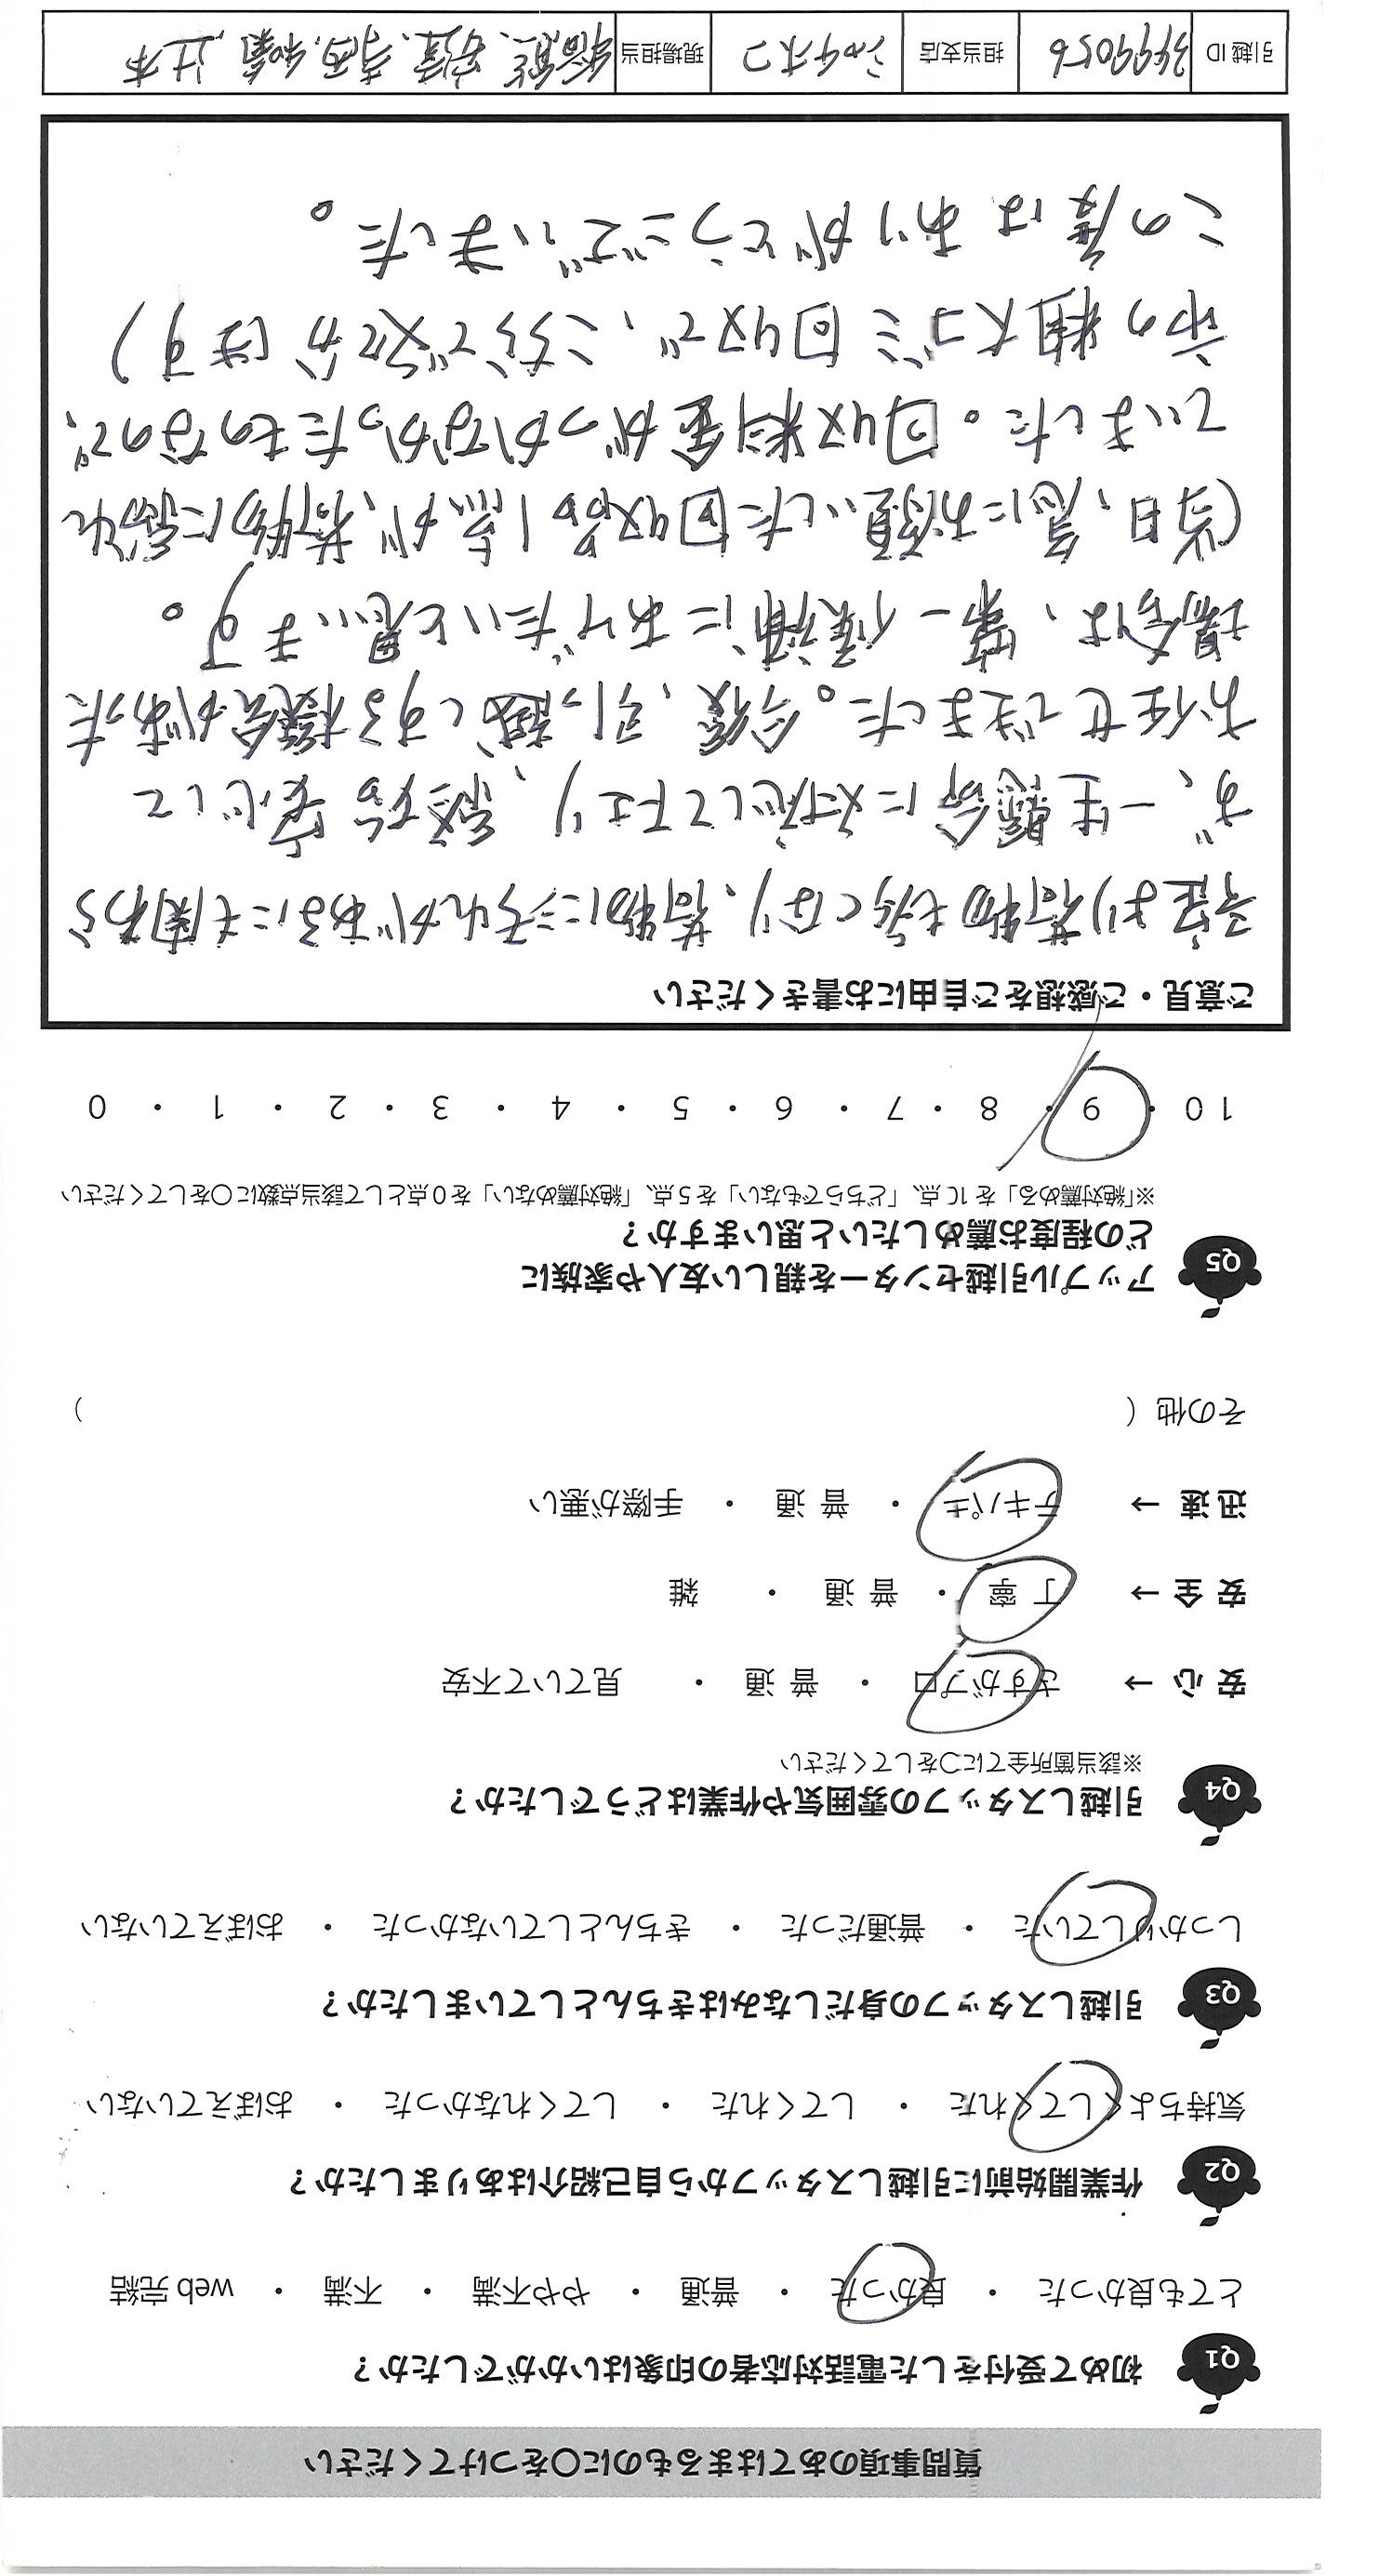 質問事項のあてはまるものに○をつけてください
Q1 初めて受付をした電話対応者の印象はいかがでしたか？
とても良かった ・ 良かった ・ 普通 ・ やや不満 ・ 不満 ・ web 完結
Q2 作業開始前に引越しスタッフから自己紹介はありましたか？
気持ちよくしてくれた ・ してくれた ・ してくれなかった ・ おぼえていない
Q3 引越しスタッフの身だしなみはきちんとしていましたか？
しっかりしていた ・ 普通だった ・ きちんとしていなかった ・ おぼえていない
Q4 引越しスタッフの雰囲気や作業はどうでしたか？
※該当箇所全てに○をしてください
安 心 → さすがプロ ・ 普 通 ・ 見ていて不安
安 全 → 丁 寧 ・ 普 通 ・ 雑
迅 速 → テキパキ ・ 普 通 ・ 手際が悪い
その他（ ）
Q5 アップル引越センターを親しい友人や家族に
どの程度お薦めしたいと思いますか？
※「絶対薦める」を 10 点、「どちらでもない」を 5 点、「絶対薦めない」を 0 点として該当点数に○をしてください
10 ・ 9 ・ 8 ・ 7 ・ 6 ・ 5 ・ 4 ・ 3 ・ 2 ・ 1 ・ 0
ご意見・ご感想をご自由にお書きください
予定より荷物も多くなり、荷物に汚れがあるにも関わら
ず、一生懸命に対応して下さり、終始安心して
お任せできました。今後、引っ越しする機会があった
場合は、第一候補にあげたいと思います。
(当日、急にお願いした回収品1点が、荷物に紛れ
ていました。回収料金がつかなかったものなので、
市の粗大ゴミ回収で、こちらで処分します)
この度はありがとうございました。
引越 ID 3499056 担当支店 現場担当 辻本